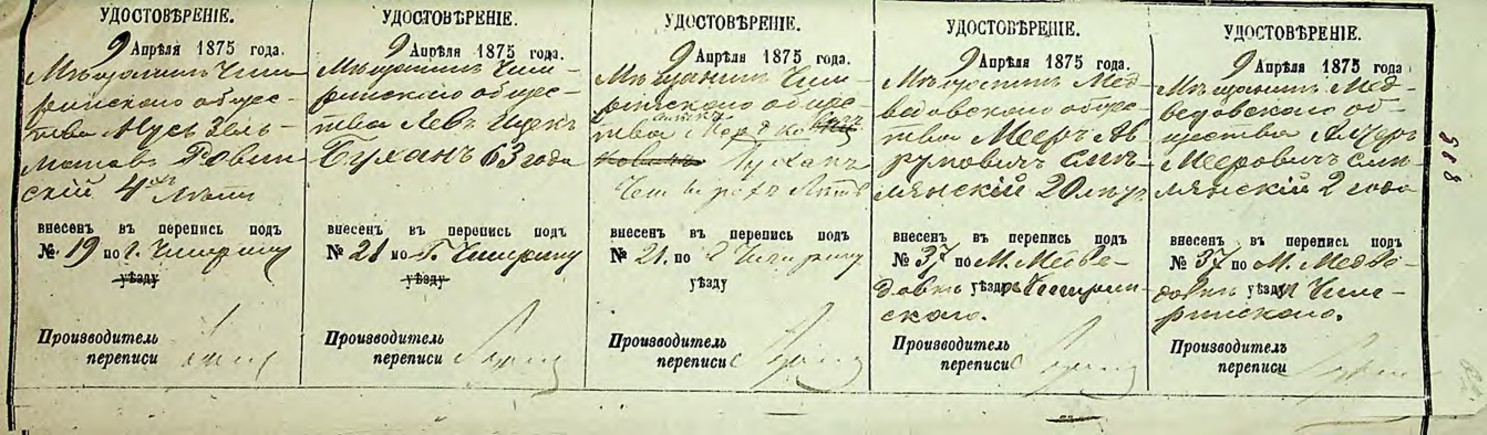 УДОСТОВѢРЕНІЕ.
9 Апрѣля 1875 года.
Мѣщанинъ Чиги-
ринскаго общес-
тва Мусь Зель-
мановъ Ровин
скій 4 лѣтъ
внесенъ въ перепись подъ
№ 19 по г. Чигирину
уѣзду
Производитель
переписи
УДОСТОВѢРЕНІЕ.
9 Апрѣля 1875 года.
Мѣщанинъ Чиги-
ринскаго общес-
тва Левъ Ицекъ
Буханъ 63 года
внесенъ въ перепись подъ
№ 21 по Г. Чигирину
уѣзду
Производитель
переписи
УДОСТОВѢРЕНІЕ.
9 Апрѣля 1875 года.
Мѣщанинъ Чиги-
ринскаго общес-
тва Мордко
ковичъ Буханъ
Четырехъ лѣтъ
внесенъ въ перепись подъ
№ 21. по г Чигирину
уѣзду
Производитель
переписи
УДОСТОВѢРЕНІЕ.
9 Апрѣля 1875 года.
Мѣщанинъ Мед-
ведовскаго общес-
тва Мееръ Ав
румовичъ Смѣ-
лянскій 20 лѣтъ
внесенъ въ перепись подъ
№ 37 по М. Медве-
довкѣ уѣзда Чигирин-
скаго.
Производитель
переписи
УДОСТОВѢРЕНІЕ.
9 Апрѣля 1875 года
Мѣщанинъ Мед-
ведовскаго об-
щества
Мееровичъ Смѣ-
лянскій 2 года
внесенъ въ перепись подъ
№ 37 по М. Медве-
довкѣ уѣзда Чиги-
ринскаго.
Производитель
переписи